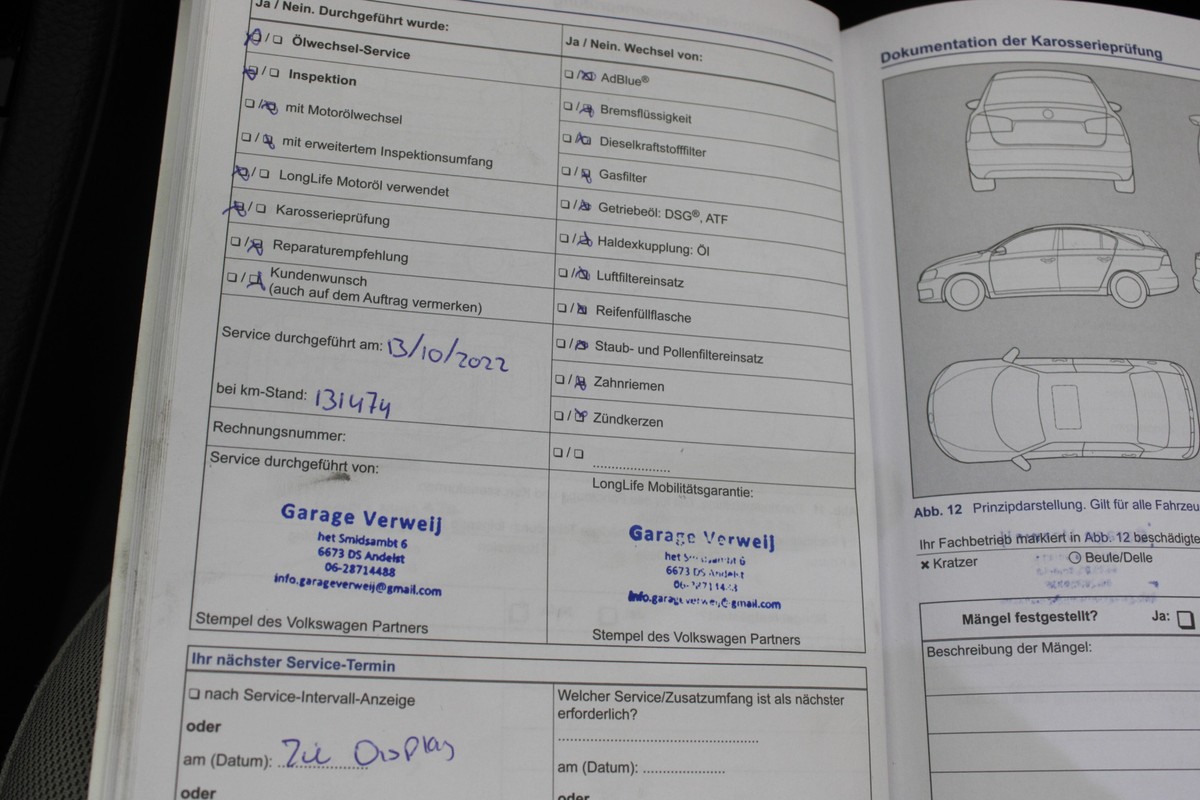 Ja / Nein. Durchgeführt wurde:
☒ / ☐ Ölwechsel-Service
☒ / ☐ Inspektion
☐ / ☒ mit Motorölwechsel
☐ / ☒ mit erweitertem Inspektionsumfang
☒ / ☐ LongLife Motoröl verwendet
☒ / ☐ Karosserieprüfung
☐ / ☒ Reparaturempfehlung
☐ / ☒ Kundenwunsch
(auch auf dem Auftrag vermerken)
Service durchgeführt am: 13/10/2022
bei km-Stand: 131474
Rechnungsnummer:
Service durchgeführt von:
Garage Verweij
het Smidsambt 6
6673 DS Andelst
06-28714488
info.garageverweij@gmail.com
Stempel des Volkswagen Partners
Ja / Nein. Wechsel von:
☐ / ☒ AdBlue®
☐ / ☒ Bremsflüssigkeit
☐ / ☒ Dieselkraftstofffilter
☐ / ☒ Gasfilter
☐ / ☒ Getriebeöl: DSG®, ATF
☐ / ☒ Haldexkupplung: Öl
☐ / ☒ Luftfiltereinsatz
☐ / ☒ Reifenfüllflasche
☐ / ☒ Staub- und Pollenfiltereinsatz
☐ / ☒ Zahnriemen
☐ / ☒ Zündkerzen
☐ / ☐ ....................
LongLife Mobilitätsgarantie:
Garage Verweij
6673 DS Andelst
info.garageverweij@gmail.com
Stempel des Volkswagen Partners
Ihr nächster Service-Termin
☐ nach Service-Intervall-Anzeige
oder
am (Datum): Zie Display
oder
Welcher Service/Zusatzumfang ist als nächster
erforderlich?
am (Datum): ....................
oder
Dokumentation der Karosserieprüfung
Abb. 12 Prinzipdarstellung. Gilt für alle Fahrzeu
Ihr Fachbetrieb markiert in Abb. 12 beschädigte
× Kratzer
Beule/Delle
Mängel festgestellt? Ja: ☐
Beschreibung der Mängel: